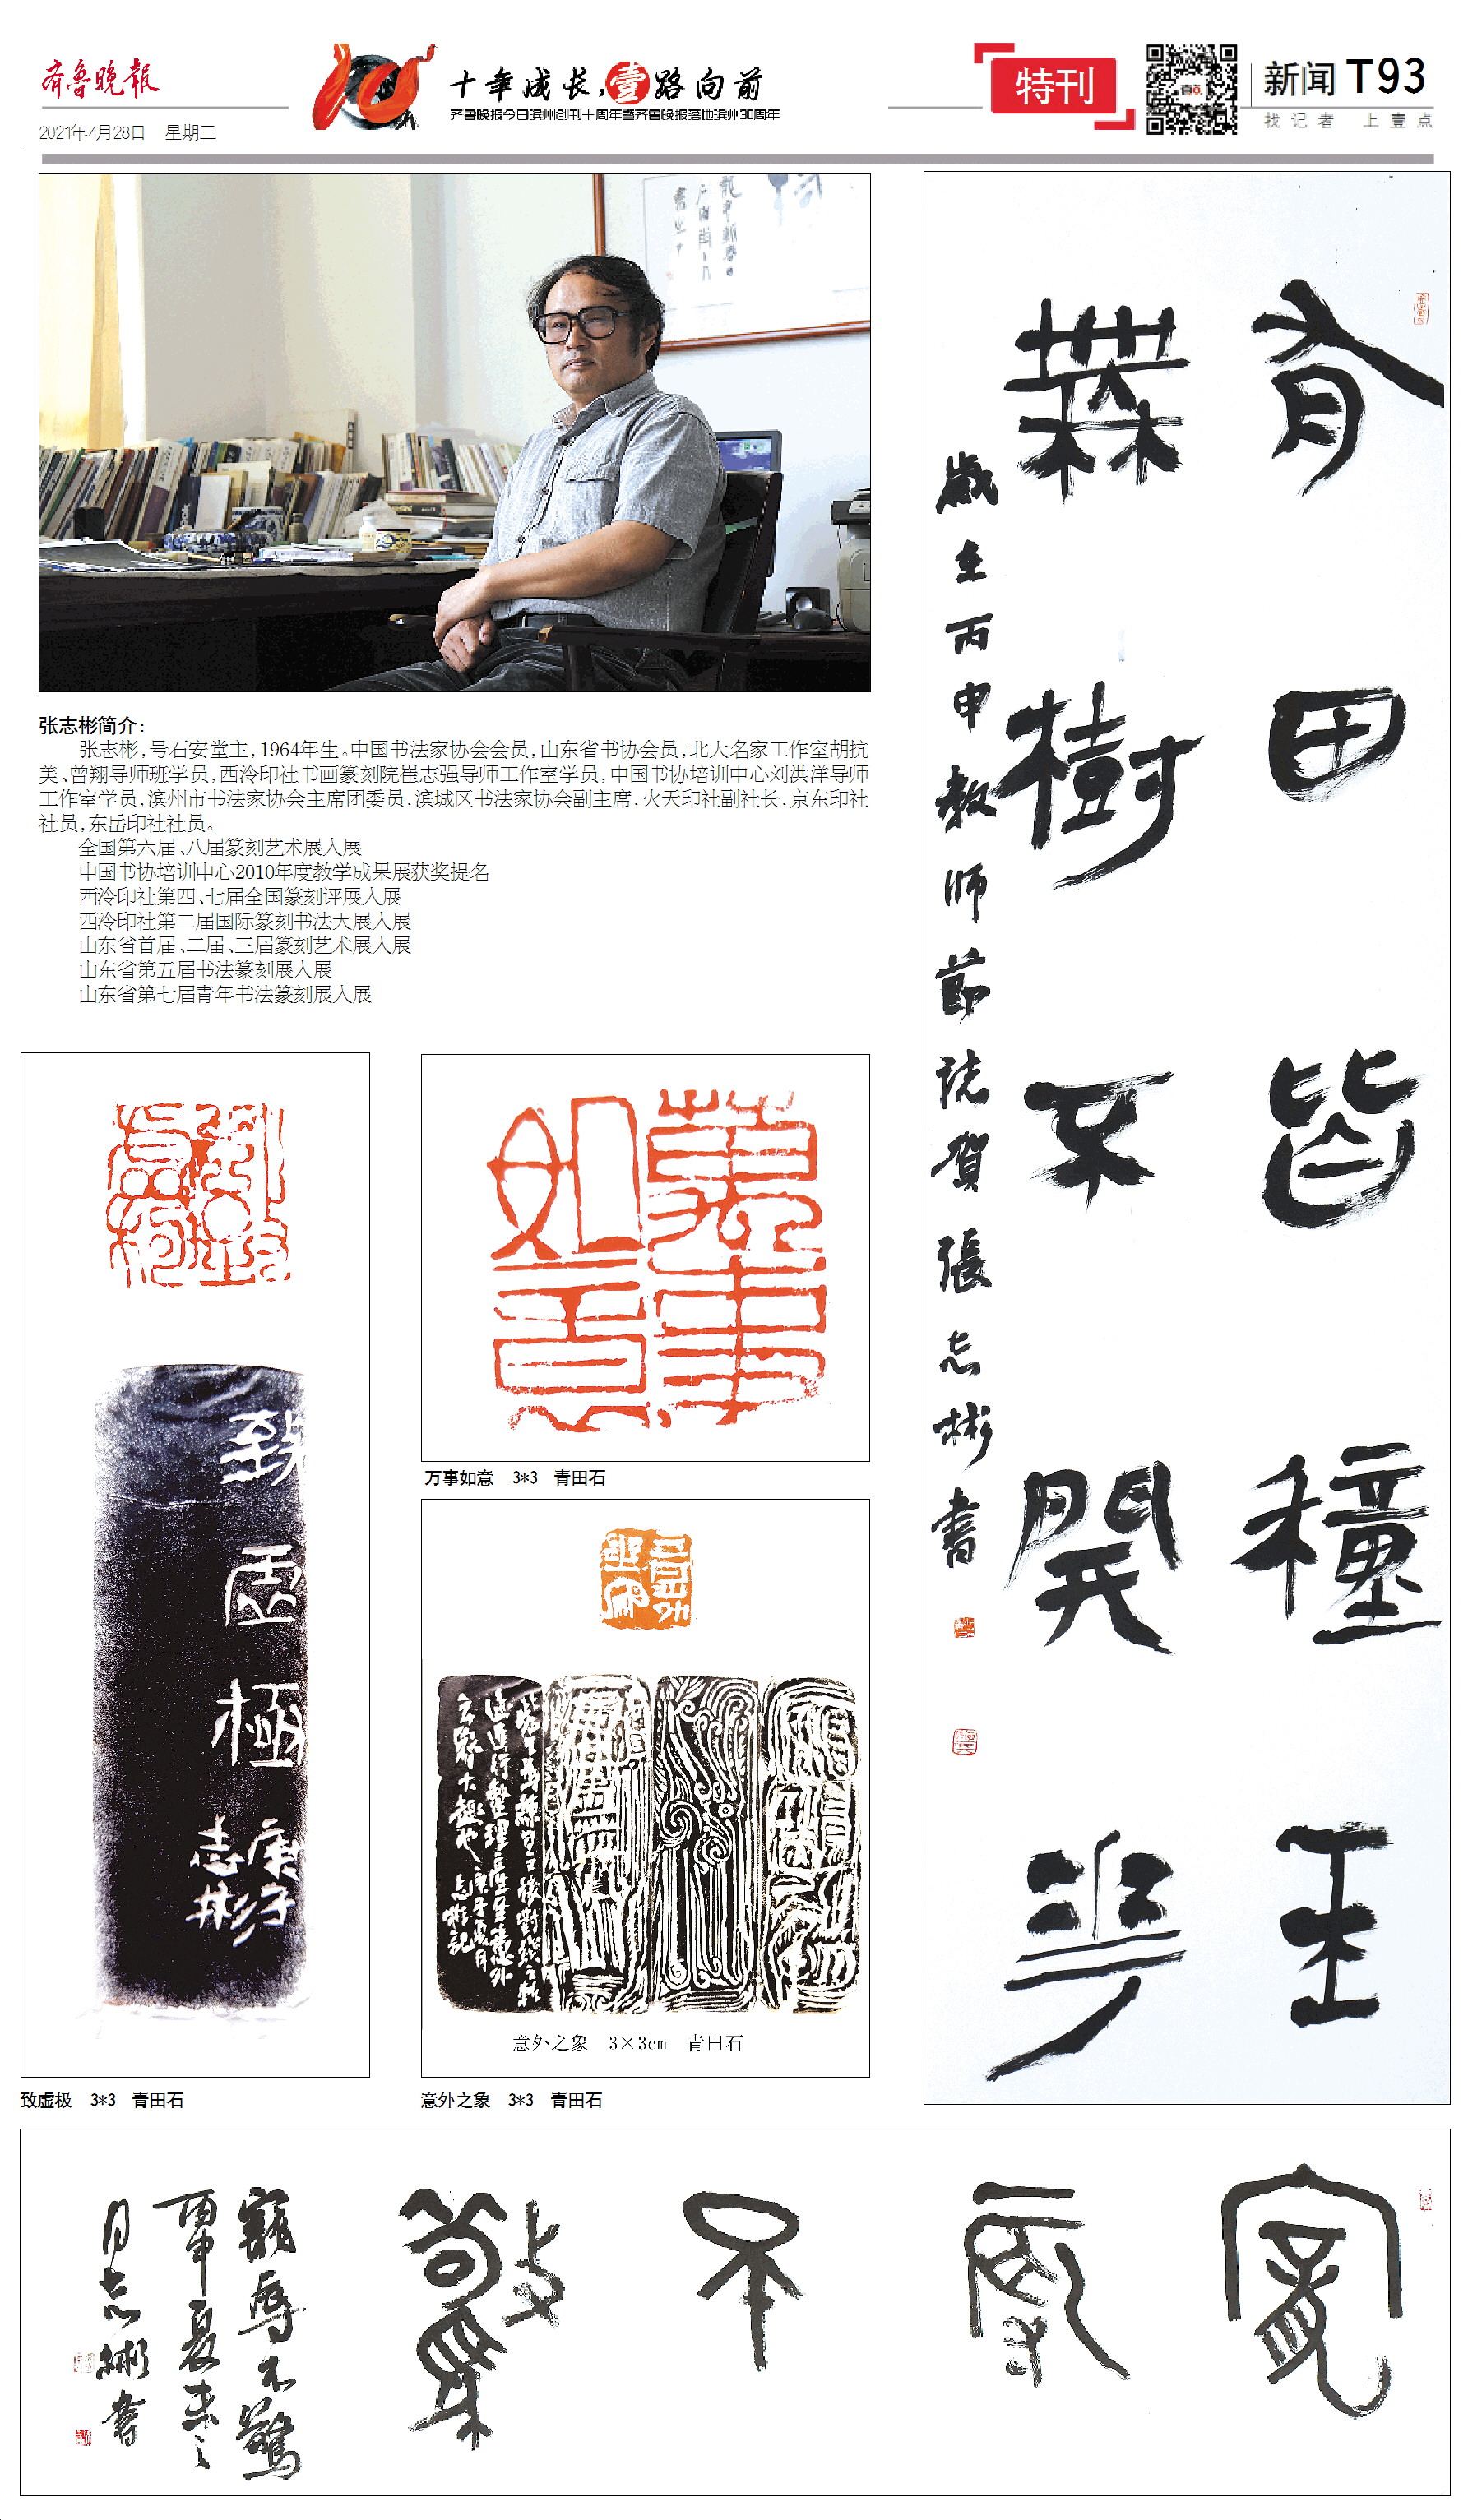 齐鲁晚报
2021年4月28日 星期三
十年成长，壹路向前
齐鲁晚报今日滨州创刊十周年暨齐鲁晚报落地滨州30周年
特刊
新闻 T93
找记者 上壹点
张志彬简介：
张志彬，号石安堂主，1964年生。中国书法家协会会员，山东省书协会员，北大名家工作室胡抗
美、曾翔导师班学员，西泠印社书画篆刻院崔志强导师工作室学员，中国书协培训中心刘洪洋导师
工作室学员，滨州市书法家协会主席团委员，滨城区书法家协会副主席，火天印社副社长，京东印社
社员，东岳印社社员。
全国第六届、八届篆刻艺术展入展
中国书协培训中心2010年度教学成果展获奖提名
西泠印社第四、七届全国篆刻评展入展
西泠印社第二届国际篆刻书法大展入展
山东省首届、二届、三届篆刻艺术展入展
山东省第五届书法篆刻展入展
山东省第七届青年书法篆刻展入展
有田皆種玉
無樹不開花
歲在丙申教师節誌賀張志彬書
致虚極
庚子
志彬
致虚极 3*3 青田石
万事如意
万事如意 3*3 青田石
意外之象 3×3cm 青田石
意外之象 3*3 青田石
寵辱不驚
寵辱不驚
丙申夏末之
月志彬書